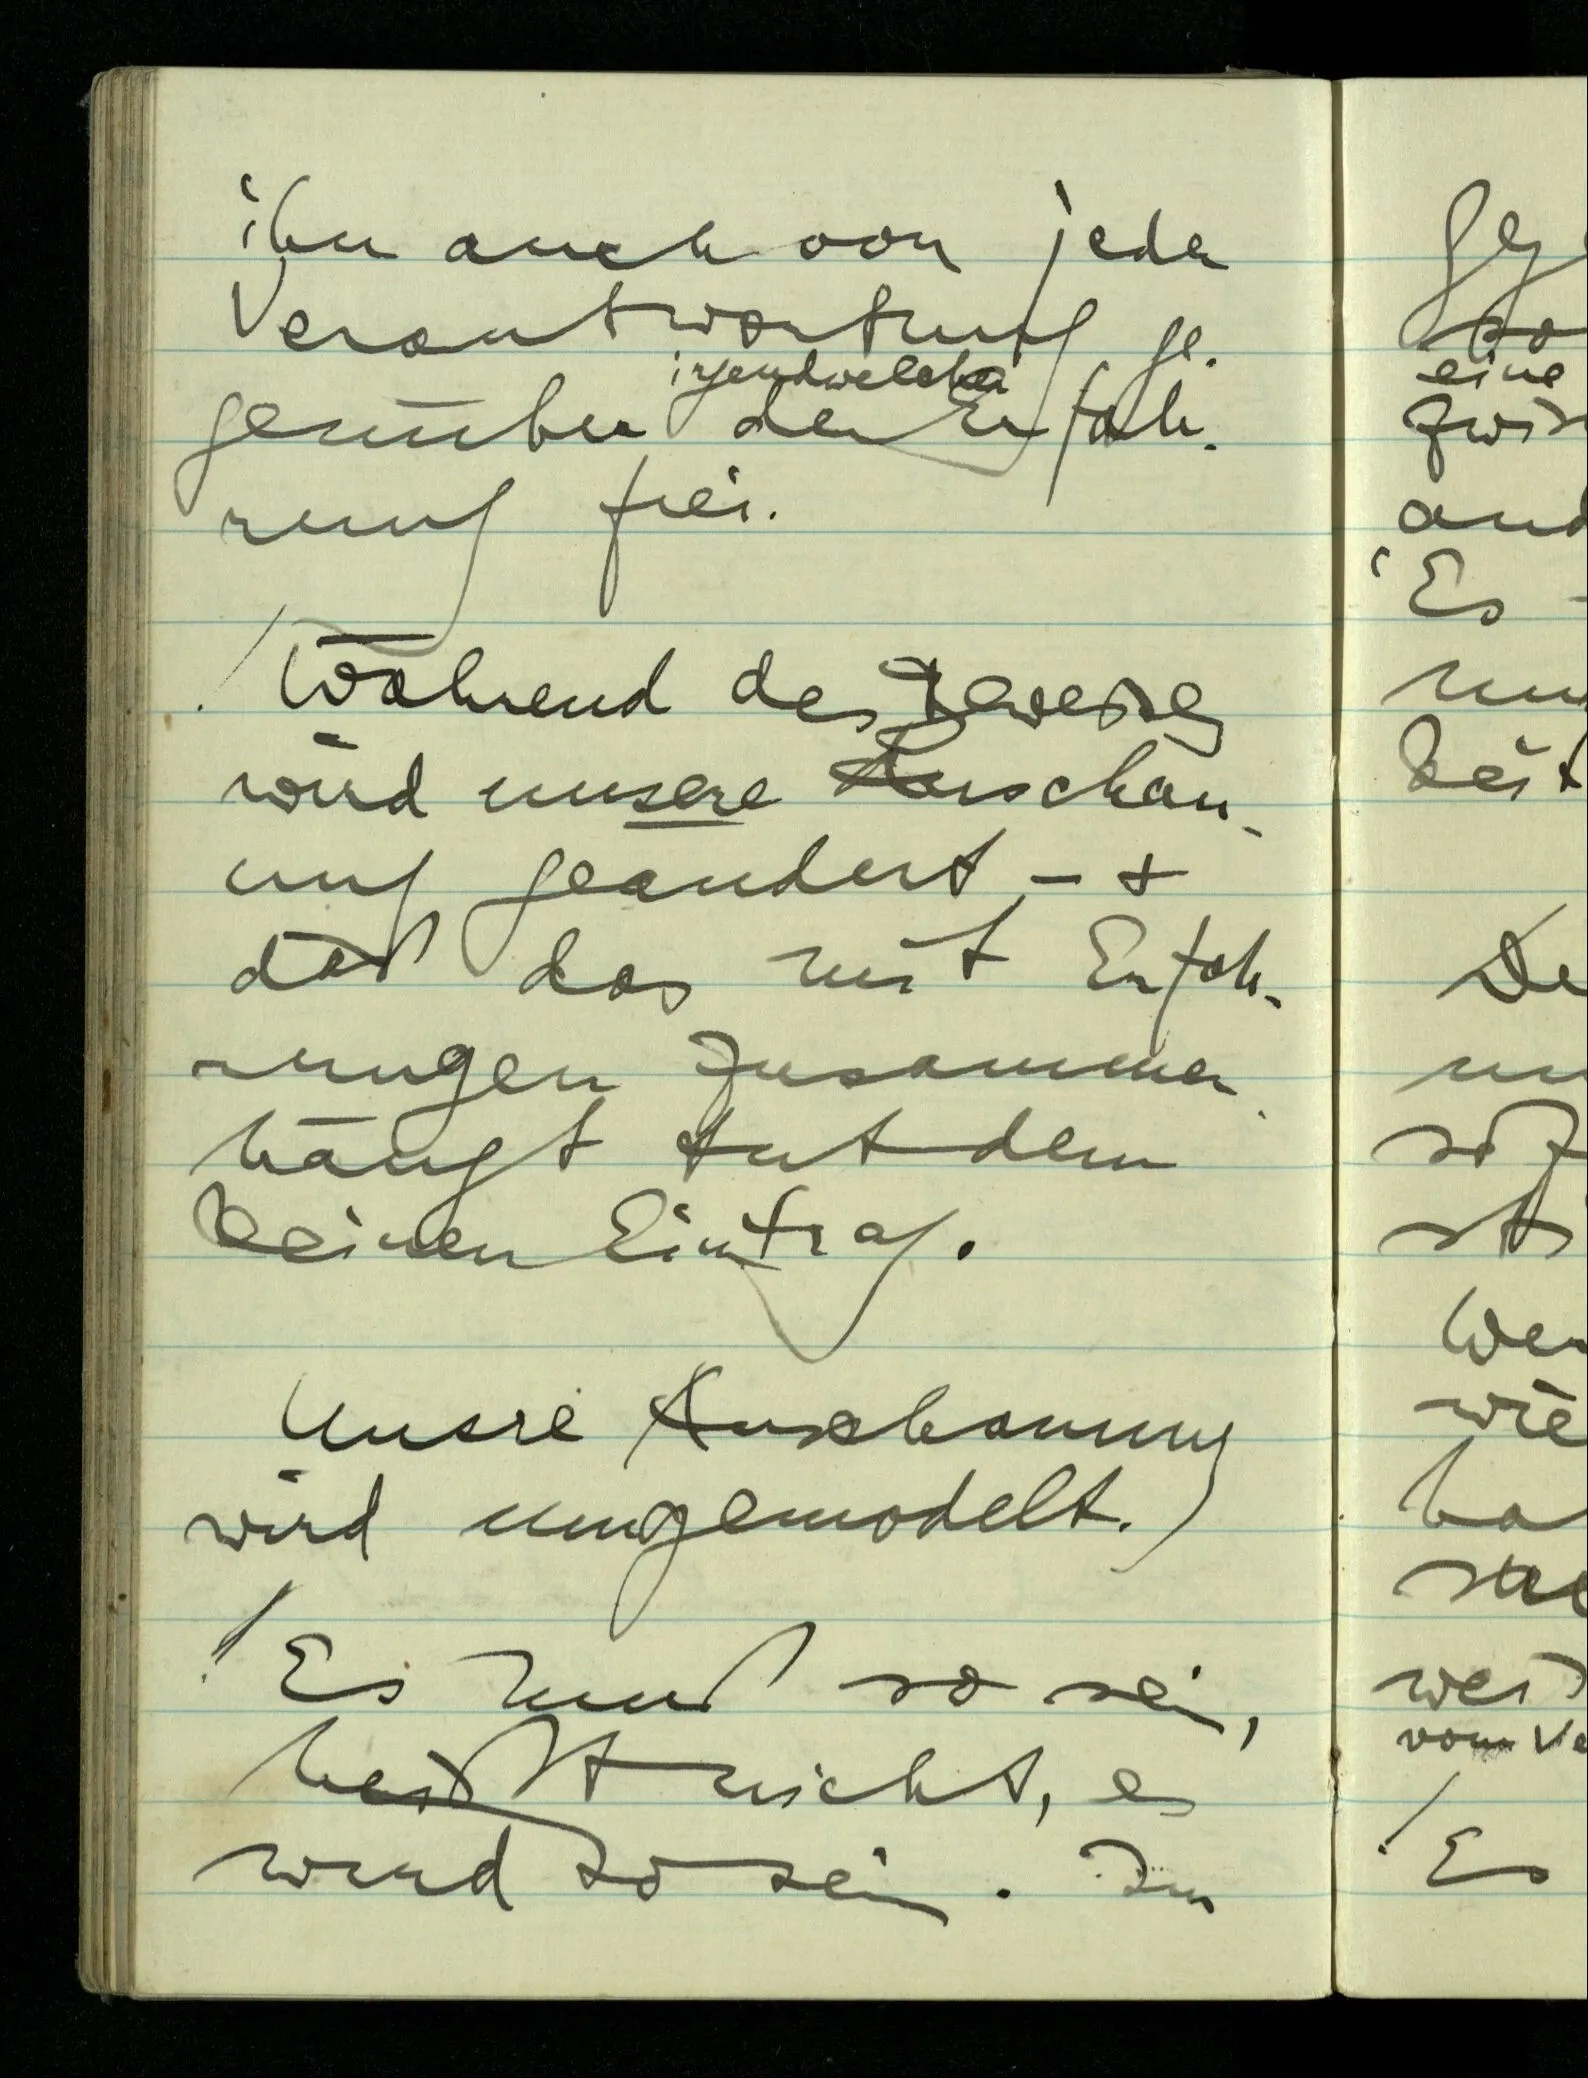 ihn auch von jeder
Verantwortung ge-
irgendwelcher
genüber der Erfah-
rung frei.
/ Während des Beweises
wird unsere Anschau-
ung geändert – +
daß das mit Erfah-
rungen zusammen-
hängt tut dem
keinen Eintrag.
Unsre Anschauung
wird umgemodelt.)
/ Es muß so sein,
heißt nicht, es
wird so sein. Im
eine
Es
vom
/ Es